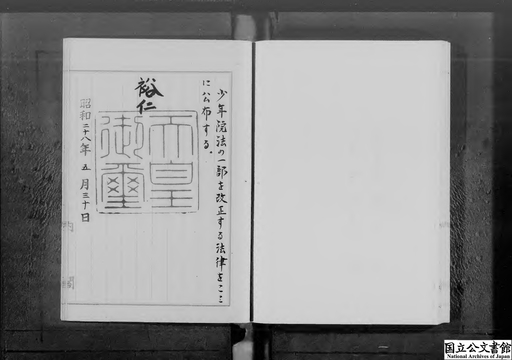 少年院法の一部を改正する法律をここ
に公布する。
裕仁
天皇
御璽
昭和二十八年五月三十日
内閣
国立公文書館
National Archives of Japan